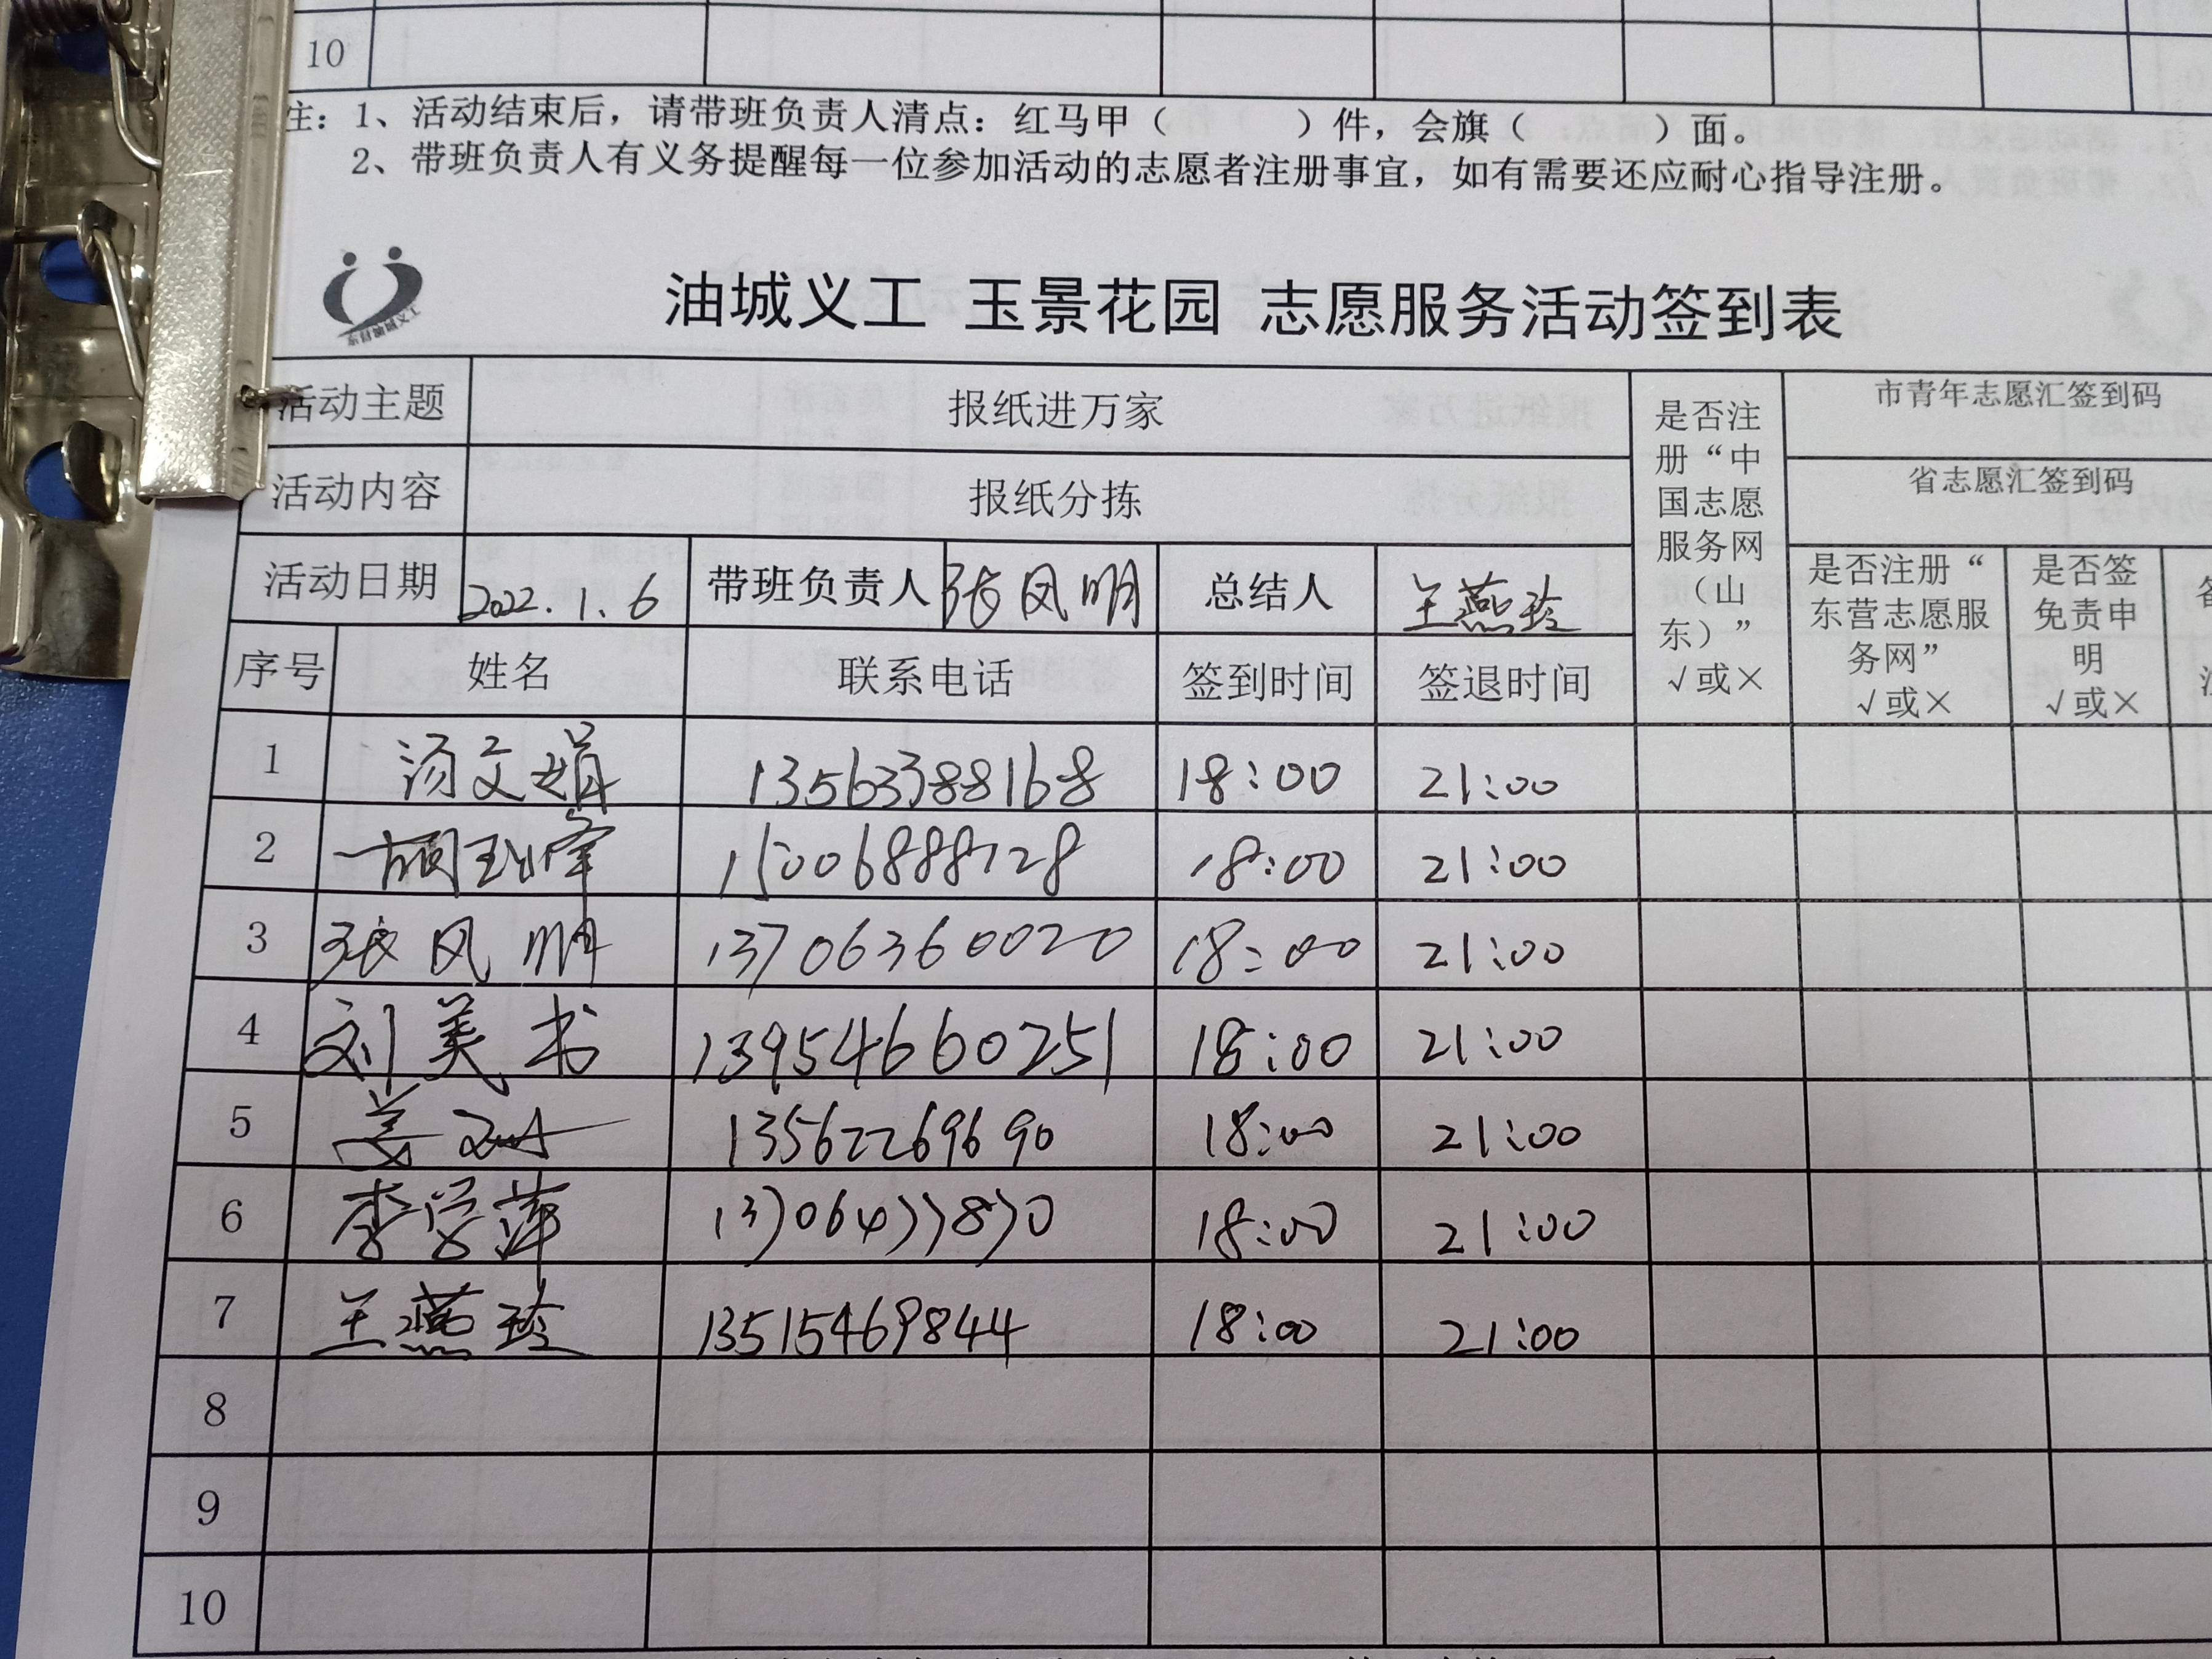 10
注：1、活动结束后，请带班负责人清点：红马甲（　　）件，会旗（　　）面。
2、带班负责人有义务提醒每一位参加活动的志愿者注册事宜，如有需要还应耐心指导注册。
油城义工 玉景花园 志愿服务活动签到表
活动主题 报纸进万家 是否注册“中国志愿服务网（山东）”√或× 市青年志愿汇签到码
活动内容 报纸分拣 省志愿汇签到码
活动日期 2022.1.6 带班负责人 张凤明 总结人 王燕玲 是否注册“东营志愿服务网”√或× 是否签免责申明√或×
序号 姓名 联系电话 签到时间 签退时间
1 汤文娟 13563388168 18:00 21:00
2 胡 峰 15006888728 18:00 21:00
3 张凤明 13706360020 18:00 21:00
4 刘美书 13954660251 18:00 21:00
5 姜 13562269690 18:00 21:00
6 李学萍 13706477870 18:00 21:00
7 王燕玲 13515469844 18:00 21:00
8
9
10